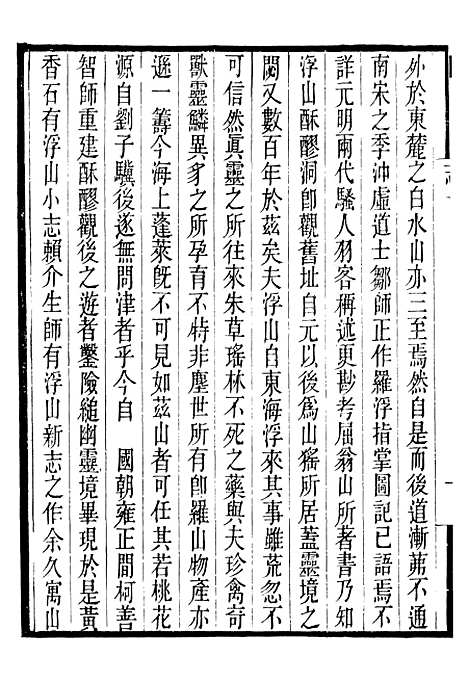 外於東麓之白水山亦三至焉然自是而後道漸茀不通
南宋之季沖虛道士鄒師正作羅浮指掌圖記已語焉不
詳元明兩代騷人羽客稱述更尠考屈翁山所著書乃知
浮山酥醪洞卽觀舊址自元以後爲山猺所居蓋靈境之
閟又數百年於茲矣夫浮山自東海浮來其事雖荒忽不
可信然眞靈之所往來朱草瑤林不死之藥與夫珍禽奇
獸靈鱗異豸之所孕育不特非塵世所有卽羅山物產亦
遜一籌今海上蓬萊旣不可見如茲山者可任其若桃花
源自劉子驥後遂無問津者乎今自　國朝雍正間柯善
智師重建酥醪觀後之遊者鑿險縋幽靈境畢現於是黃
香石有浮山小志賴介生師有浮山新志之作余久寓山